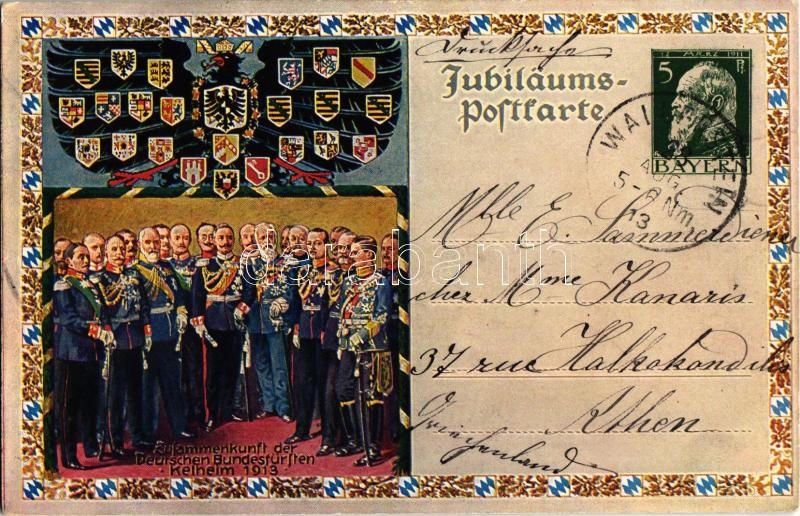 Drucksache
Jubiläums-
Postkarte
12 MÄRZ 1911
5 Pf
BAYERN
5-6 Nm
13
Mlle E.
chez Mme Kanaris
37 rue Halkokondilis
Athen
Griechenland
Zusammenkunft der
Deutschen Bundesfürsten
Kelheim 1913
darabanth